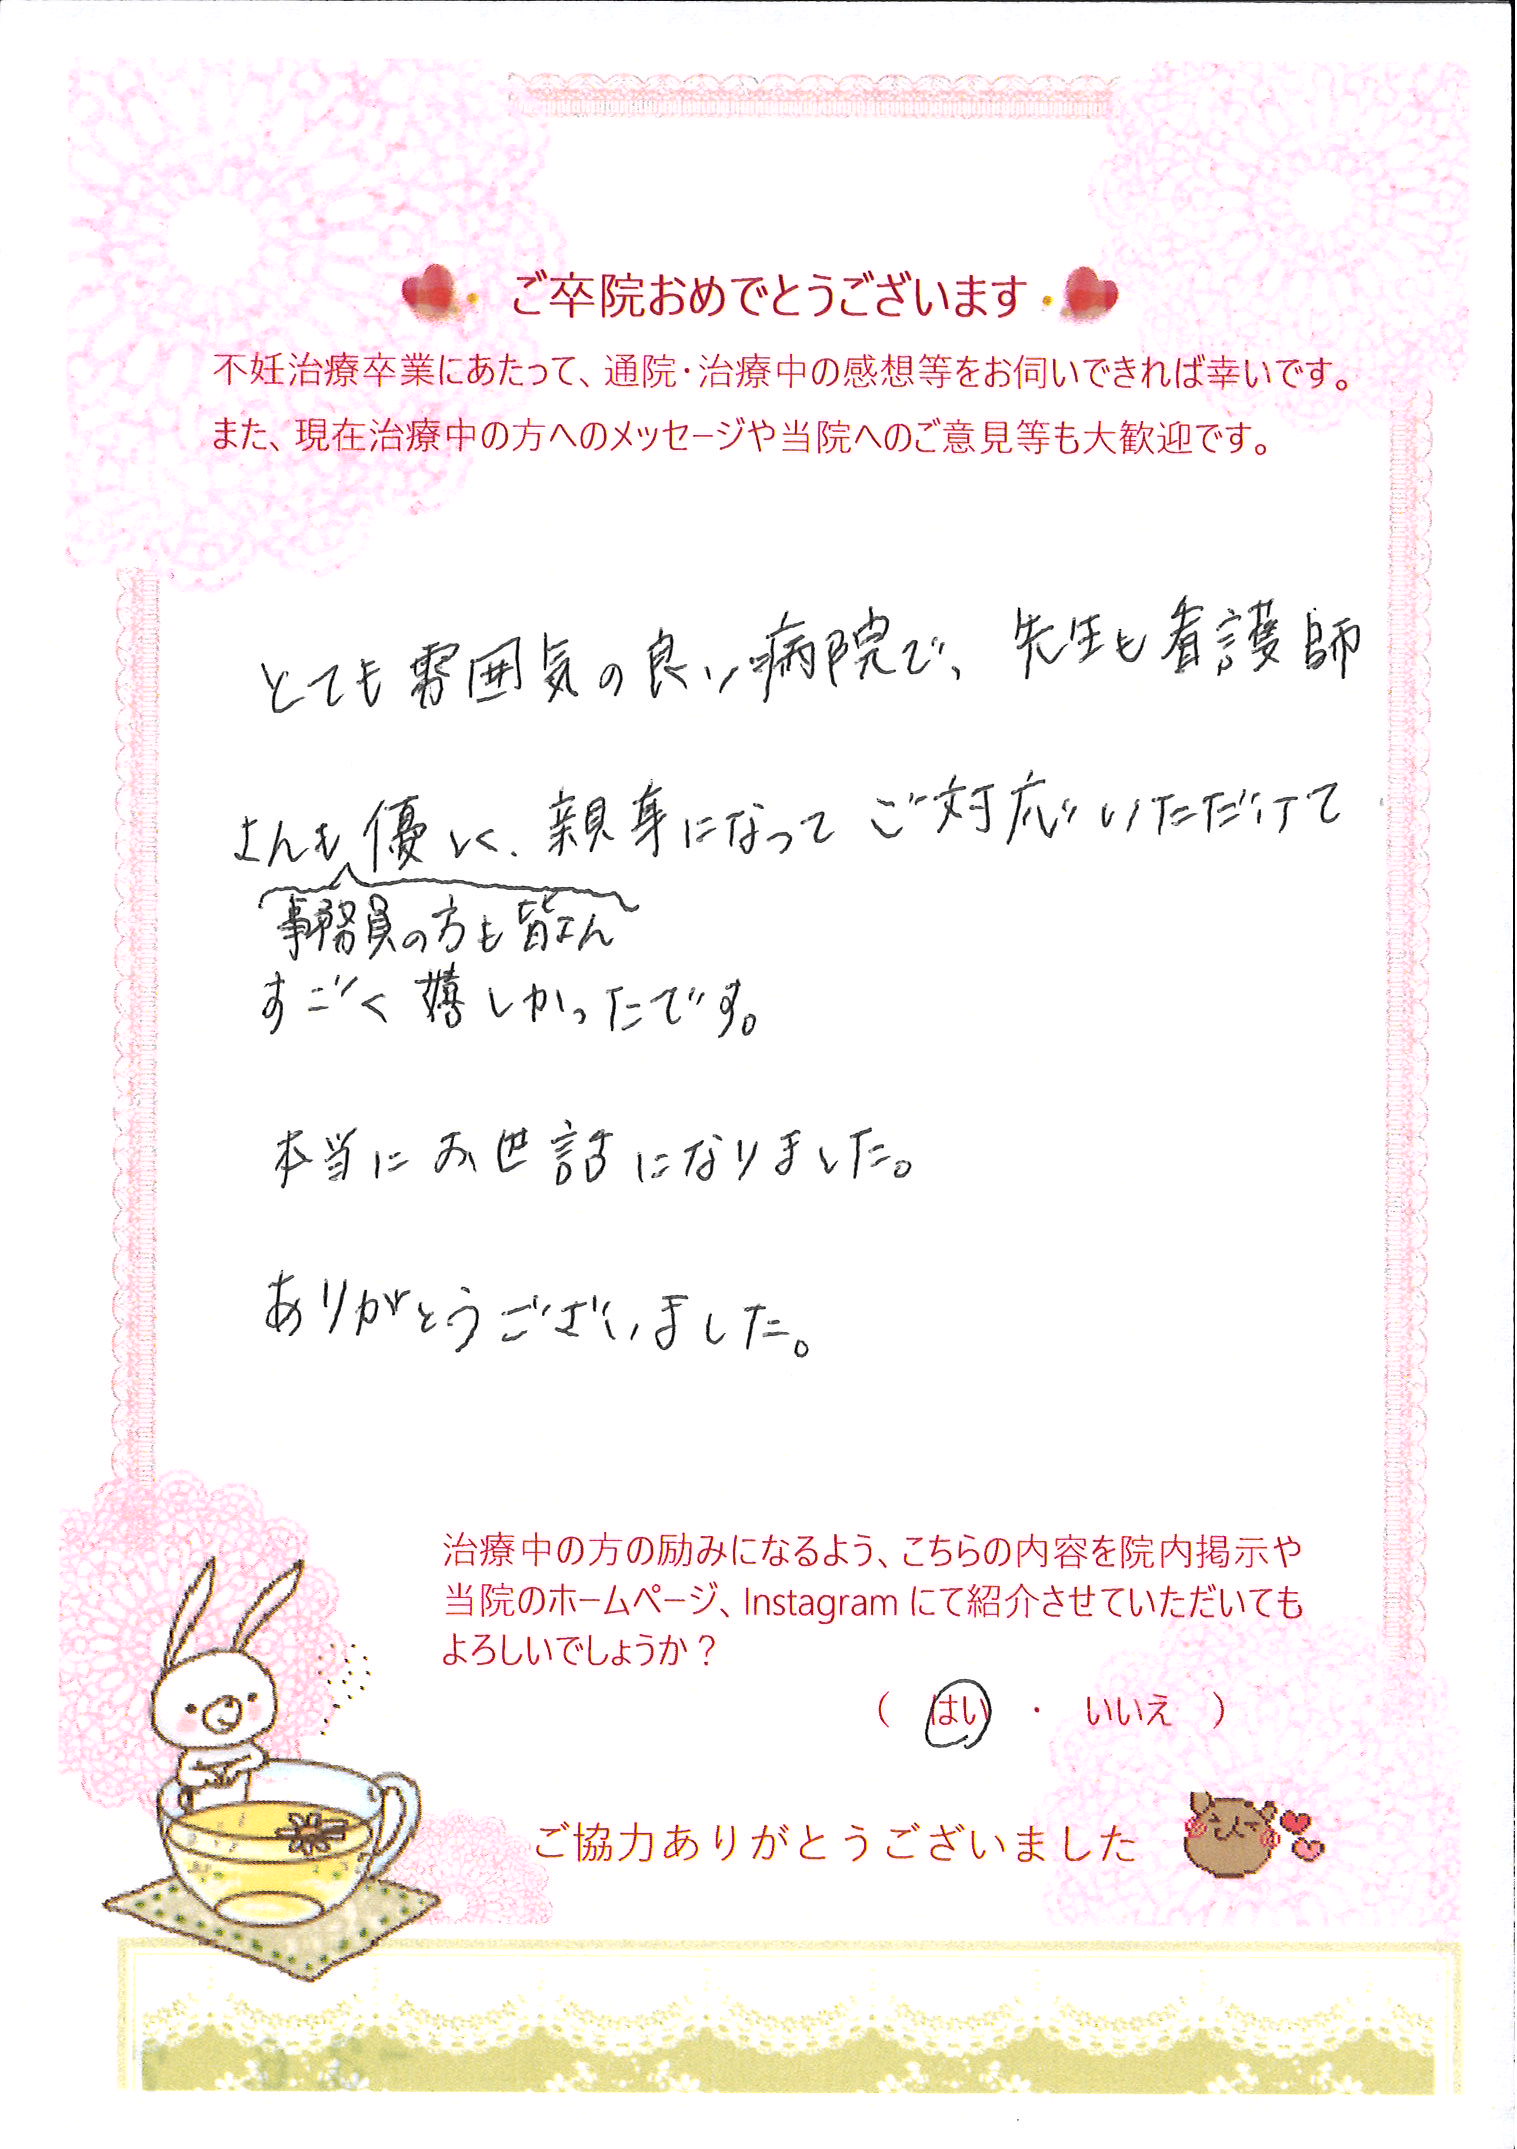 ご卒院おめでとうございます
不妊治療卒業にあたって、通院・治療中の感想等をお伺いできれば幸いです。
また、現在治療中の方へのメッセージや当院へのご意見等も大歓迎です。
とても雰囲気の良い病院で、先生も看護師
さんも優しく、親身になってご対応いただけて
事務員の方も皆さん
すごく嬉しかったです。
本当にお世話になりました。
ありがとうございました。
治療中の方の励みになるよう、こちらの内容を院内掲示や
当院のホームページ、Instagram にて紹介させていただいても
よろしいでしょうか？
（ はい ・ いいえ ）
ご協力ありがとうございました